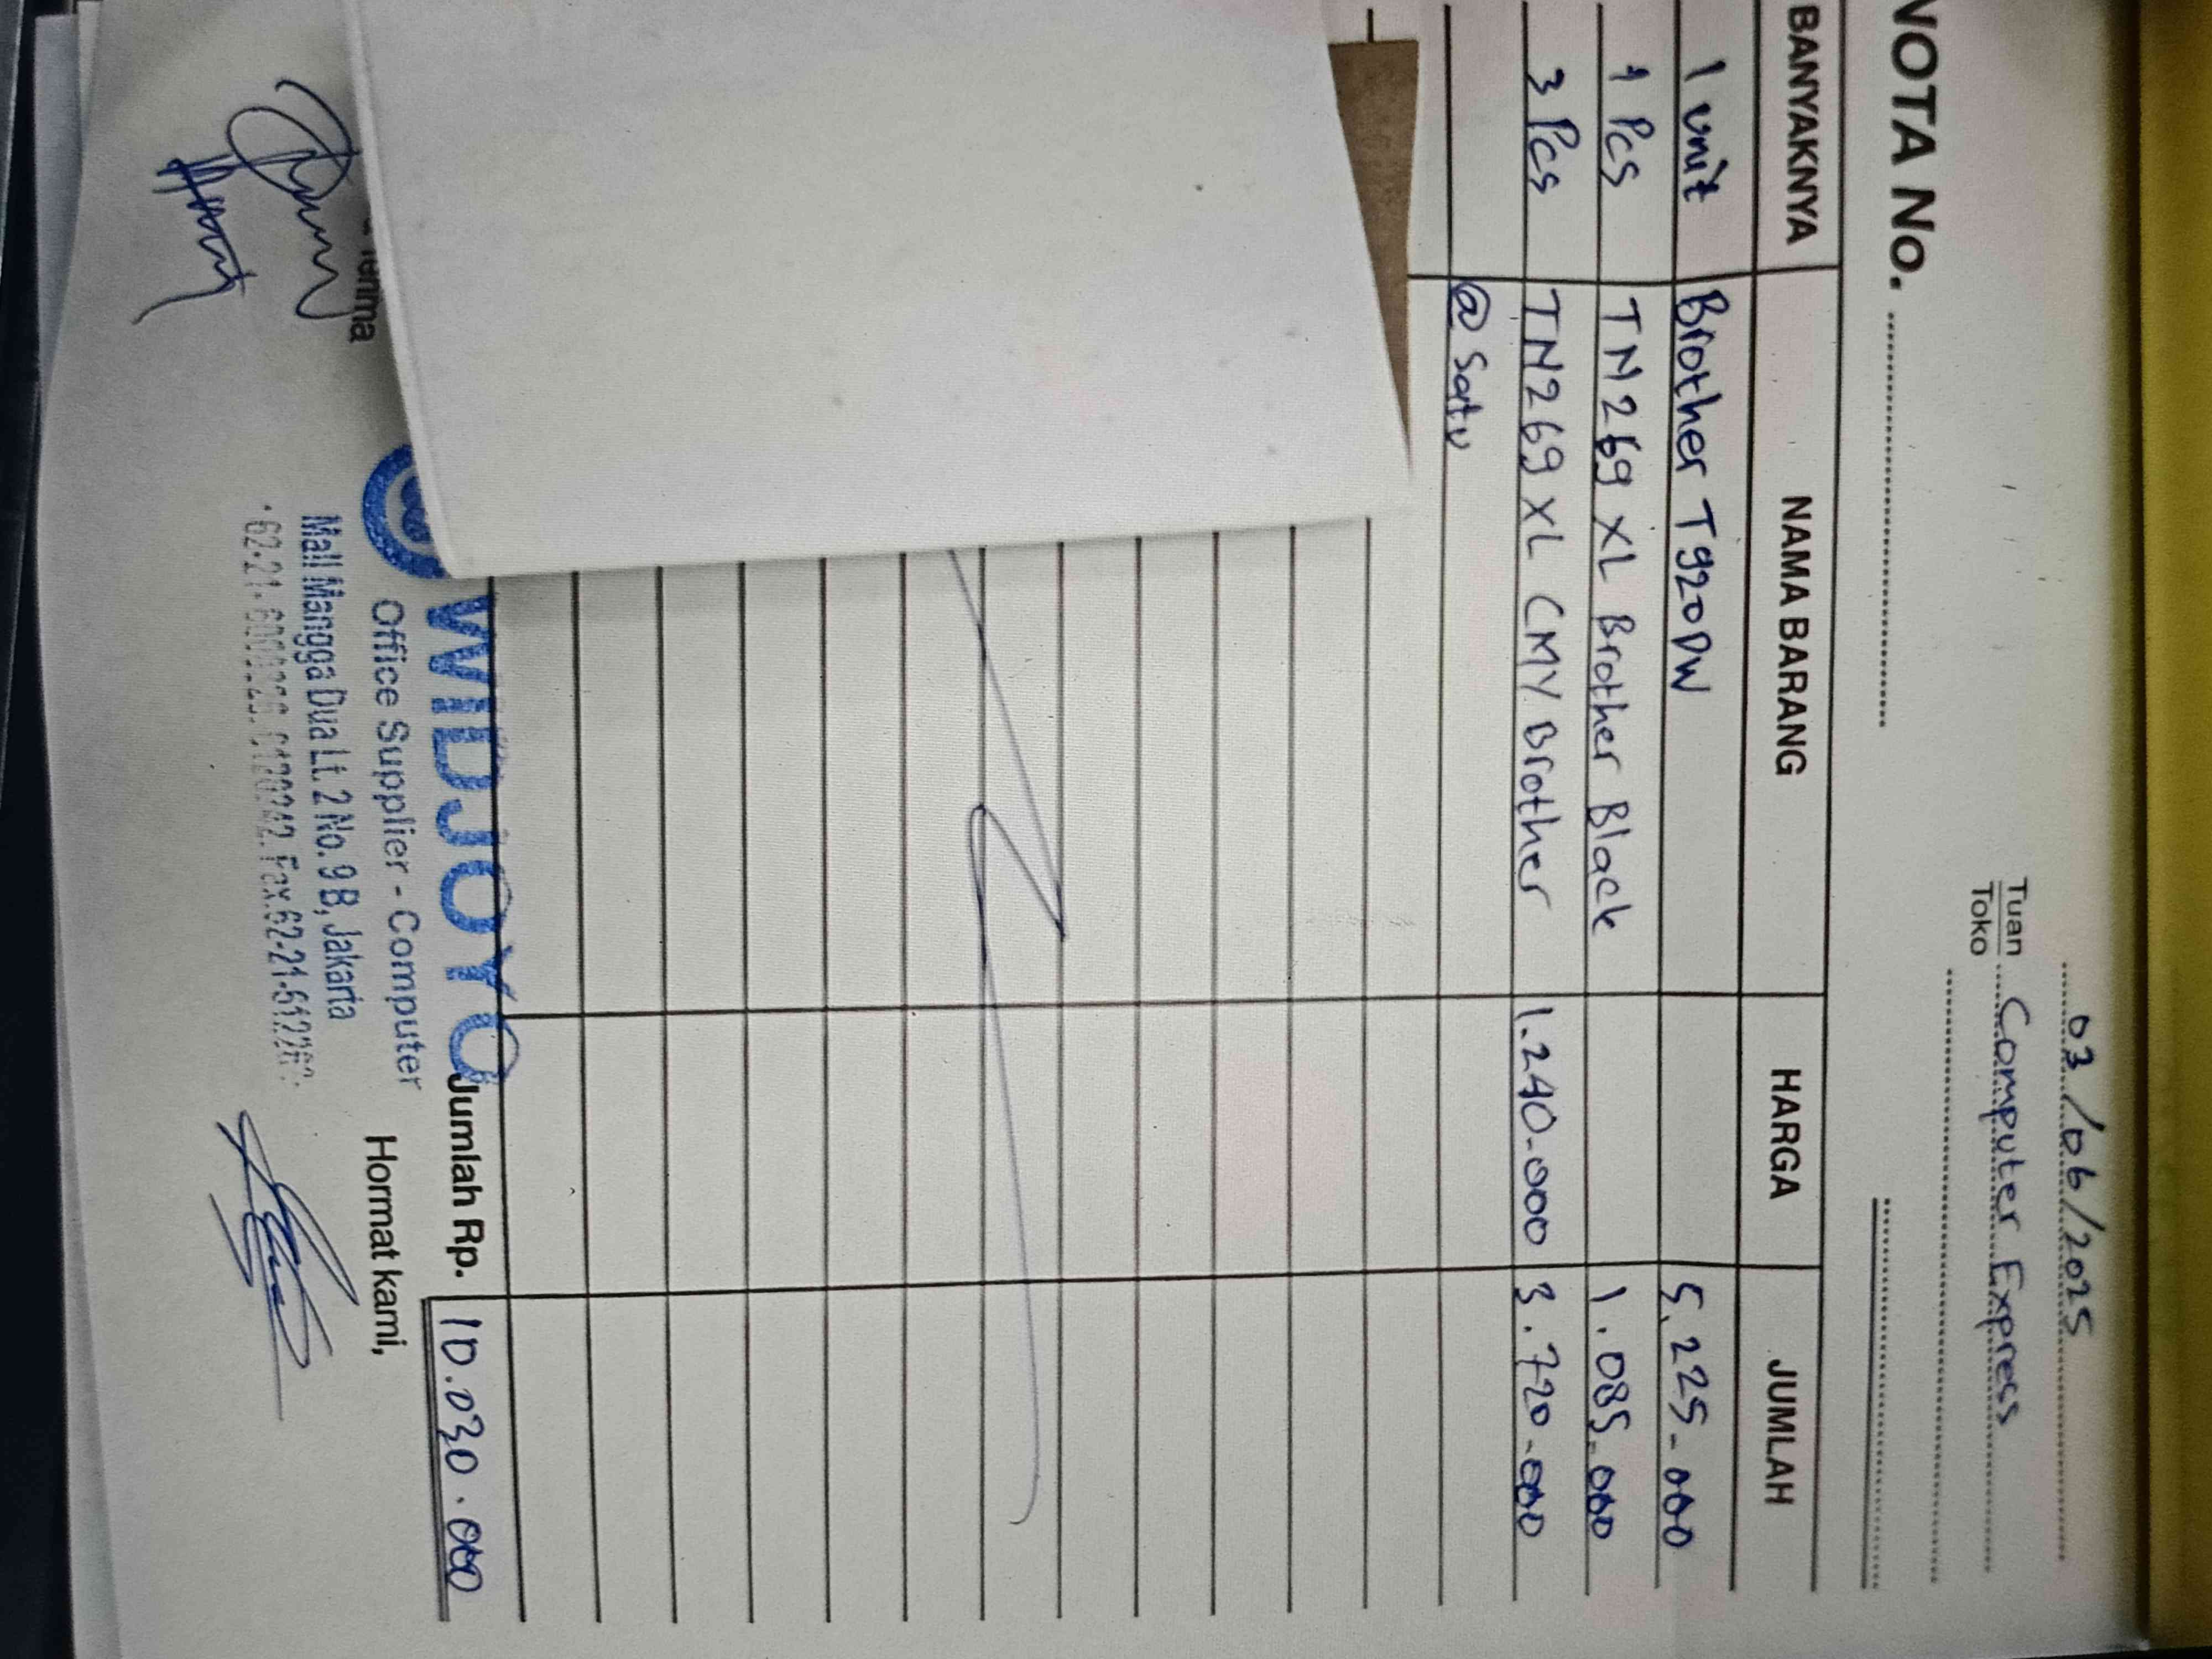 03/06/2025
Tuan
Toko Computer Express
NOTA No.
BANYAKNYA NAMA BARANG HARGA JUMLAH
1 unit Brother T920DW 5.225.000
1 Pcs TN269 XL Brother Black 1.085.000
3 Pcs TN269 XL CMY Brother 1.240.000 3.720.000
@ Satu
Jumlah Rp. 10.030.000
WIDJOYO
Office Supplier - Computer
Mall Mangga Dua Lt. 2 No. 9 B, Jakarta
Hormat kami,